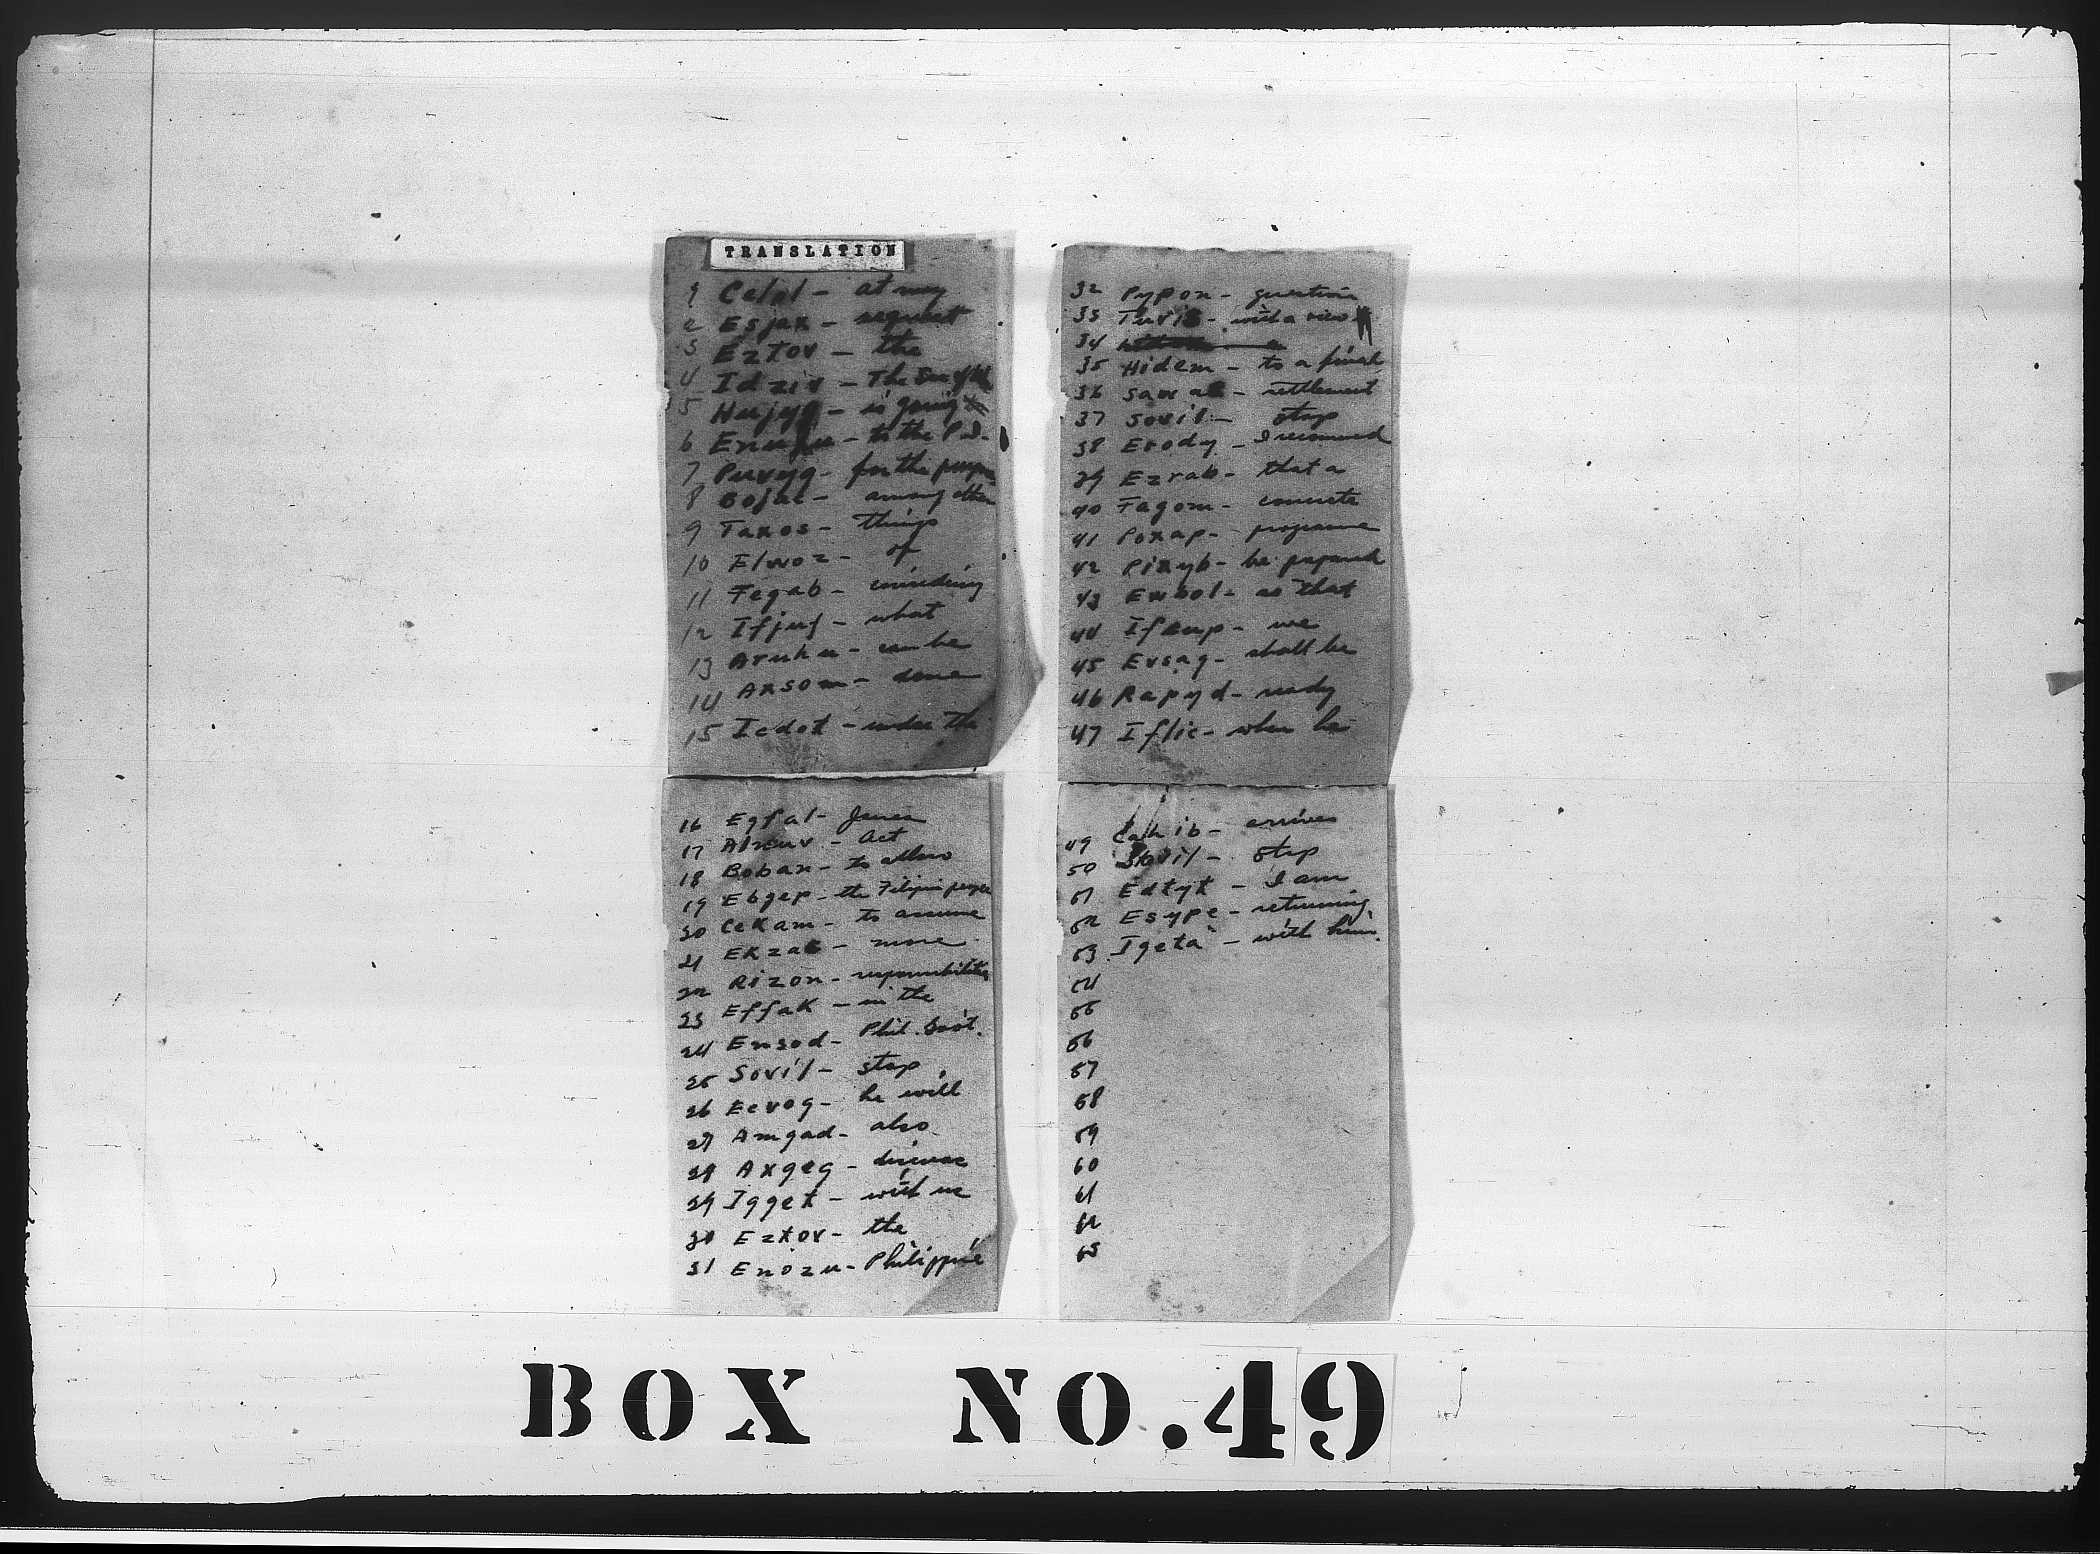 TRANSLATION
1 Celpl - at my
2 Esjax - request
3 Eztov - the
4 Idziv - The Sec of War
5 - is going
6 - to the P.I.
7 Puvyg - for the purpose
8 Bojac - among other
9 Taxos - things
10 Elwoz - of
11 Fegab - considering
12 Ifjuf - what
13 Aruhu - can be
14 Axsom - done
15 Icdot - under the
16 Egfal - Jones
17 - Act
18 Boban - to allow
19 Ebgep - the Filipino people
20 Cekam - to assume
21 Ekzak - more
22 Rizon - responsibilities
23 Effak - in the
24 Ensod - Phil. Govt.
25 Sovil - stop
26 Eevog - he will
27 Amgad - also
28 Axgeg - discuss
29 Igget - with us
30 Eztov - the
31 Enozu - Philippine
32 Pypon - question
33 - with a view
34
35 Hidem - to a final
36 - settlement
37 Sovil - stop
38 Erody - I recommend
39 Ezrab - that a
40 Fagom - concrete
41 Poxap - programme
42 Pixyb - be prepared
43 - so that
44 - we
45 Evsag - shall be
46 Rapyd - ready
47 Iflic - when he
49 - arrives
50 Sovil - stop
51 Edtyt - I am
52 Esype - returning
53 Igeta - with him.
54
55
56
57
58
59
60
61
62
63
BOX NO. 49